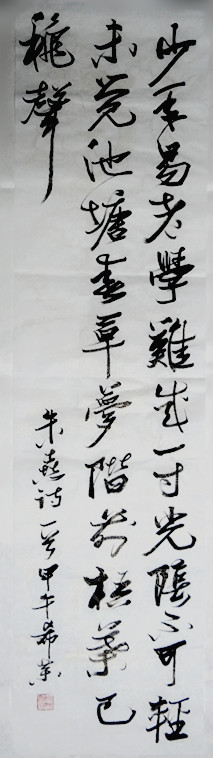 少年易老學難成一寸光陰不可輕
未覺池塘春草夢階前梧葉已
秋聲
朱熹詩一首甲午希